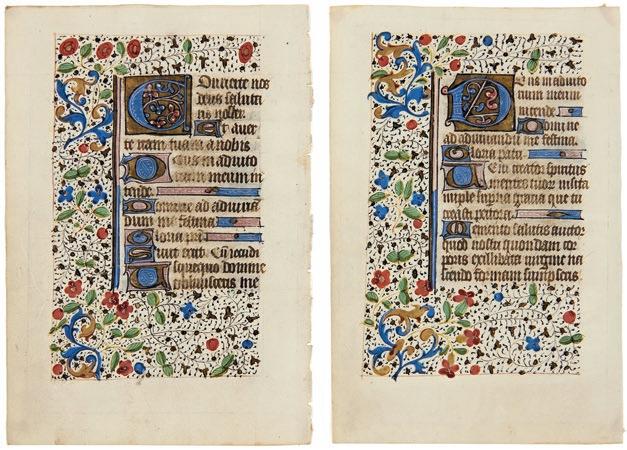 Conuerte nos
deus saluta
ris noster
Et auer
te iram tuam a nobis
Deus in adiuto
rium meum in
tende.
Domine ad adiuua
dum me festina
Gloria pri
Sicut erat.
Usquequo domine
obliuisceris me
Deus in adiuto
rium meum
intende
Domine
ad adiuuandum me festina
Gloria patri
Veni creator spiritus
mentes tuor visita
imple superna gracia que tu
creasti pectora
Memento salutis auctor
quod nostri quondam cor
poris ex illibata uirgine na
scendo formam sumpseris